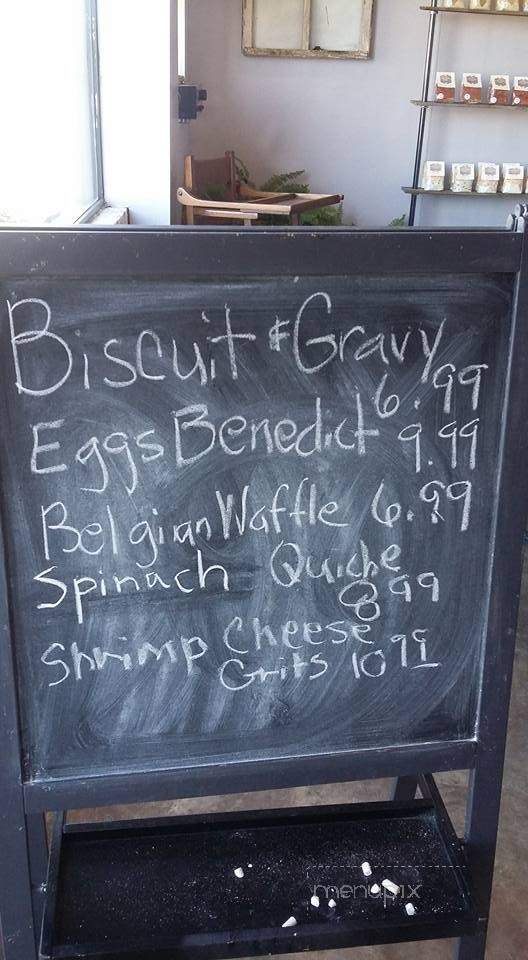 Biscuit & Gravy
6.99
Eggs Benedict 9.99
Belgian Waffle 6.99
Spinach Quiche
8 99
Shrimp Cheese
Grits 10 99
menupix